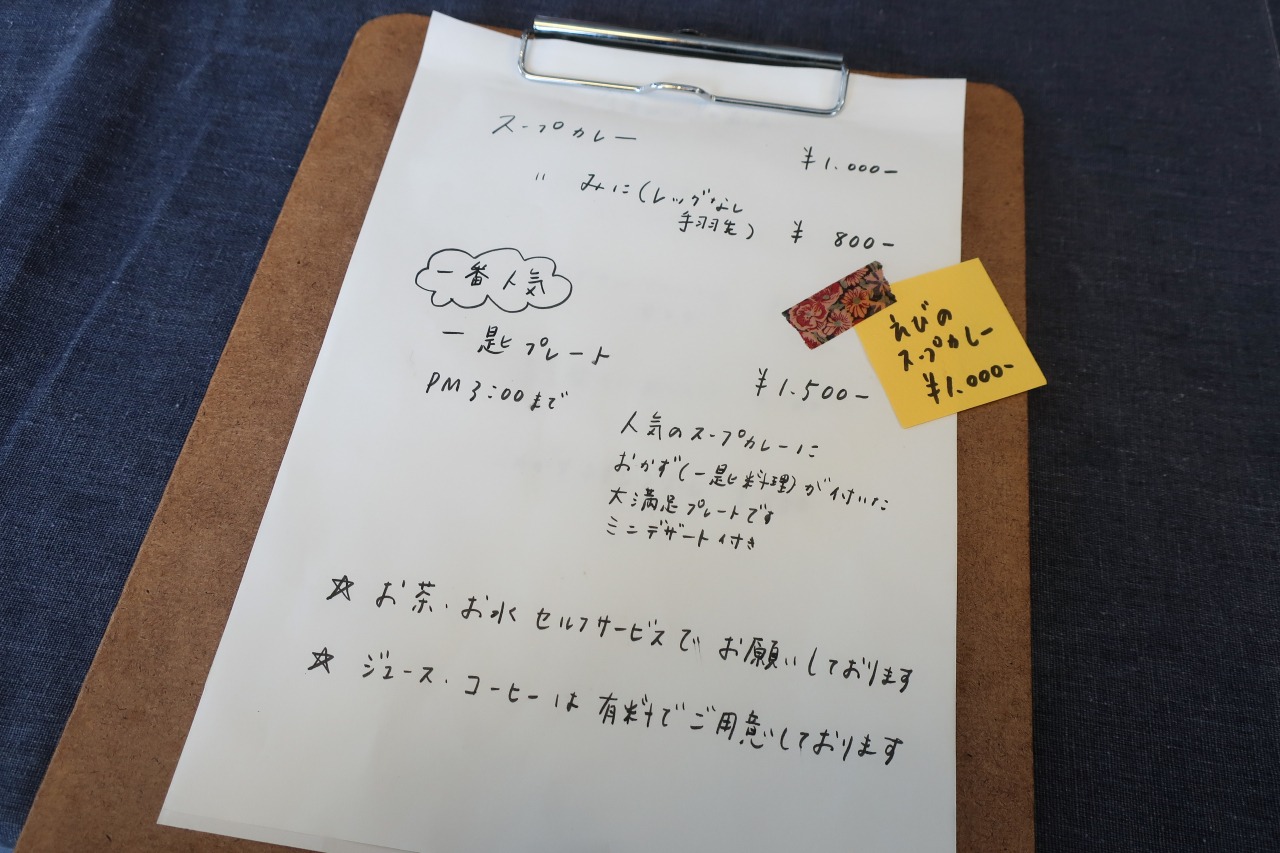 スープカレー
¥1.000-
〃 みに(レッグなし
手羽先) ¥ 800-
一番人気
一匙プレート
¥1.500-
PM3:00まで
人気のスープカレーに
おかず(一匙料理)が付いた
大満足プレートです
ミニデザート付き
えびの
スープカレー
¥1.000-
☆ お茶・お水 セルフサービスで お願いしております
☆ ジュース・コーヒーは 有料でご用意しております